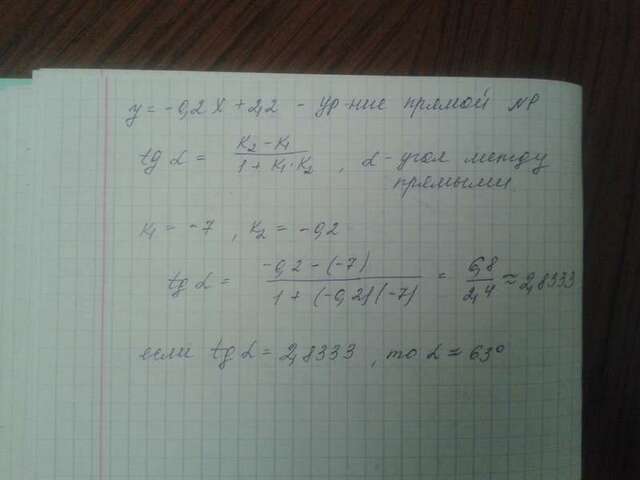 y = -0,2x + 2,2 - ур-ние прямой NP
tg α = (K₂ - K₁)/(1 + K₁·K₂), α - угол между
прямыми.
K₁ = -7, K₂ = -0,2
tg α = (-0,2 - (-7))/(1 + (-0,2)(-7)) = 6,8/2,4 ≈ 2,8333
если tg α = 2,8333, то α ≈ 63°